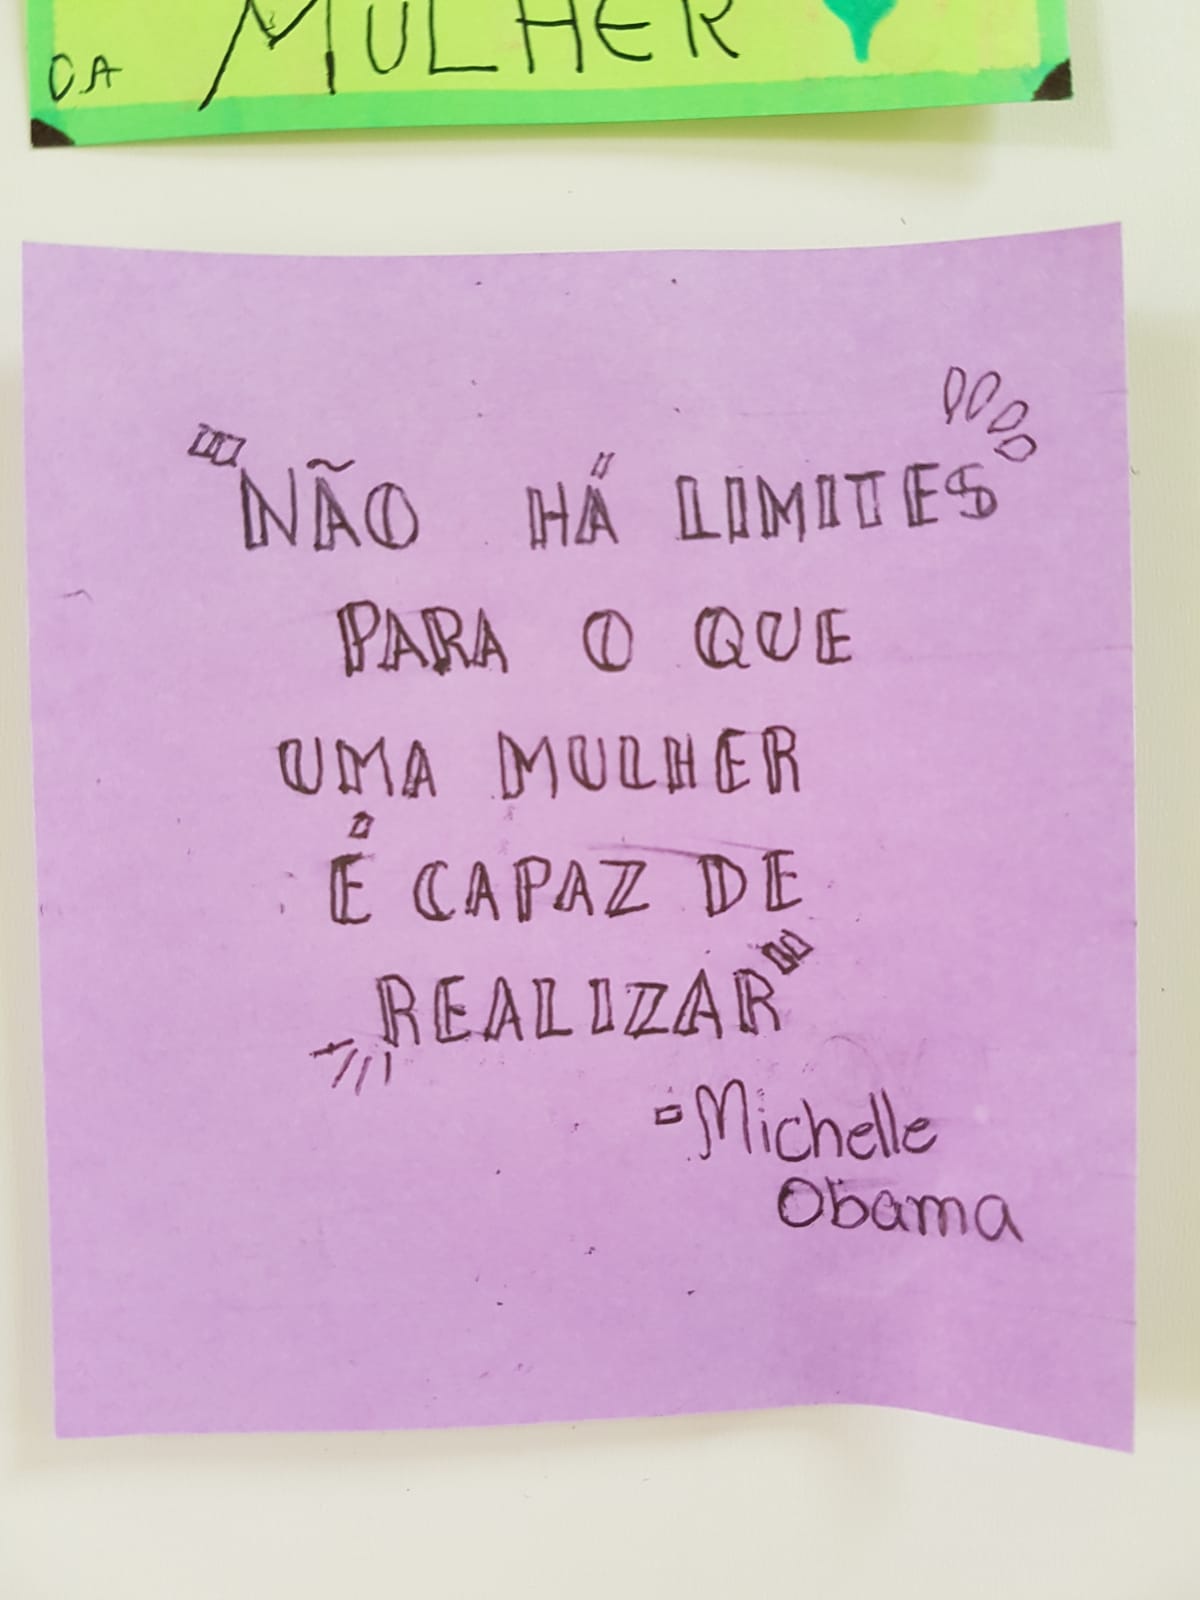 DA MULHER
"NÃO HÁ LIMITES
PARA O QUE
UMA MULHER
É CAPAZ DE
REALIZAR"
-Michelle
Obama